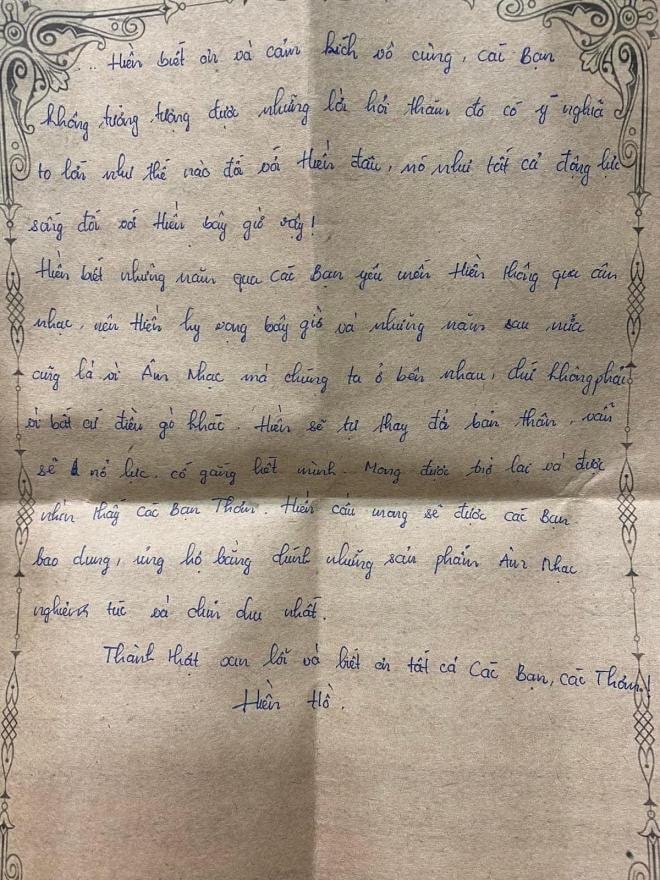 ... Hiền biết ơn và cảm kích vô cùng, các Bạn
không tưởng tượng được những lời hỏi thăm đó có ý nghĩa
to lớn như thế nào đối với Hiền đâu, nó như tất cả động lực
sống đối với Hiền bây giờ vậy!
Hiền biết những năm qua Các Bạn yêu mến Hiền thông qua âm
nhạc, nên Hiền hy vọng bây giờ và những năm sau nữa
cũng là vì Âm Nhạc mà chúng ta ở bên nhau, chứ không phải
vì bất cứ điều gì khác. Hiền sẽ tự thay đổi bản thân, vẫn
sẽ nỗ lực, cố gắng hết mình. Mong được trở lại và được
nhìn thấy Các Bạn Thơm. Hiền cầu mong sẽ được các Bạn
bao dung, ủng hộ bằng chính những sản phẩm Âm Nhạc
nghiêm túc và chỉn chu nhất.
Thành thật xin lỗi và biết ơn tất cả Các Bạn, các Thơm!
Hiền Hồ.